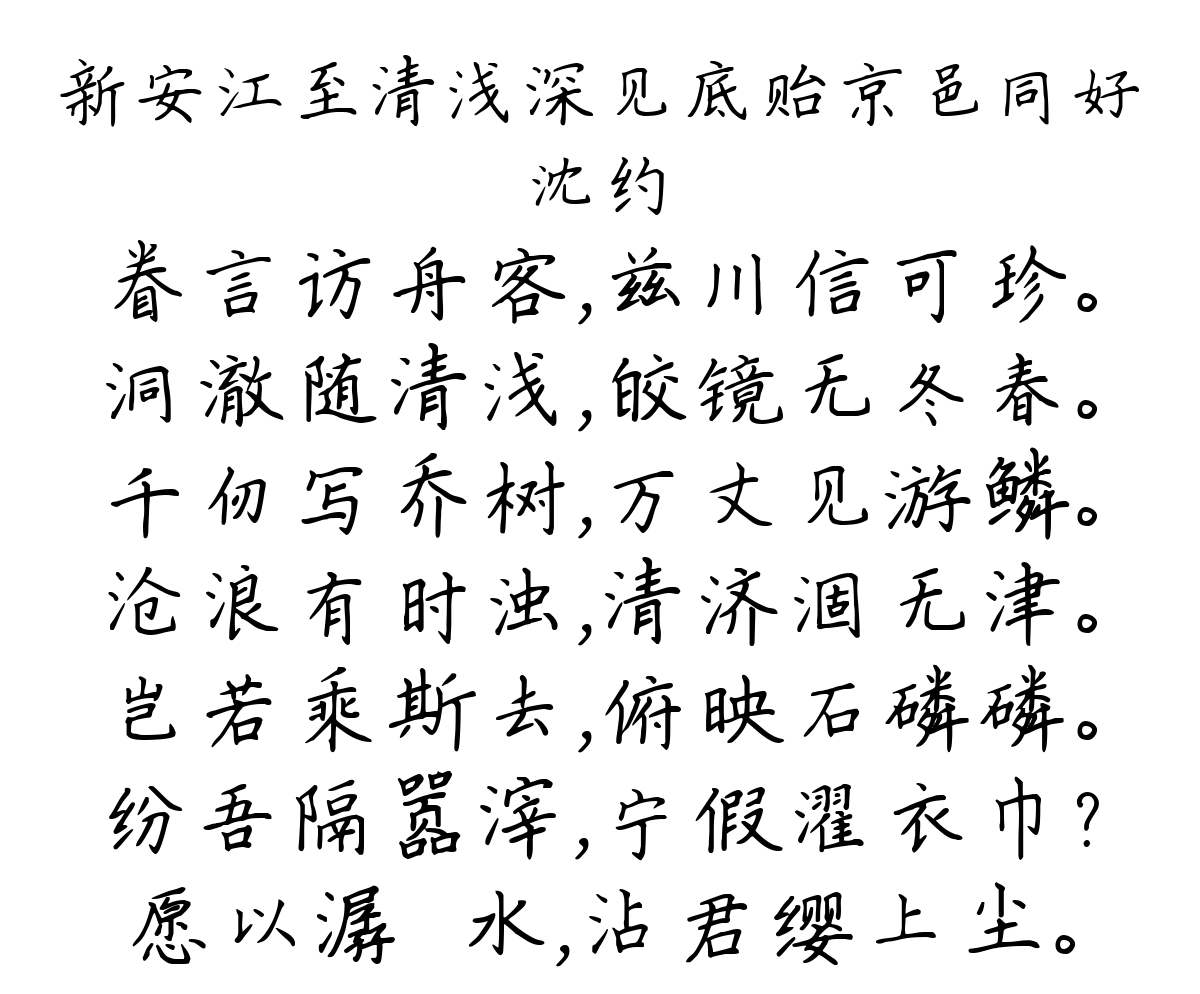 新安江至清浅深见底贻京邑同好
沈约
眷言访舟客,兹川信可珍。
洞澈随清浅,皎镜无冬春。
千仞写乔树,万丈见游鳞。
沧浪有时浊,清济涸无津。
岂若乘斯去,俯映石磷磷。
纷吾隔嚣滓,宁假濯衣巾?
愿以潺 水,沾君缨上尘。